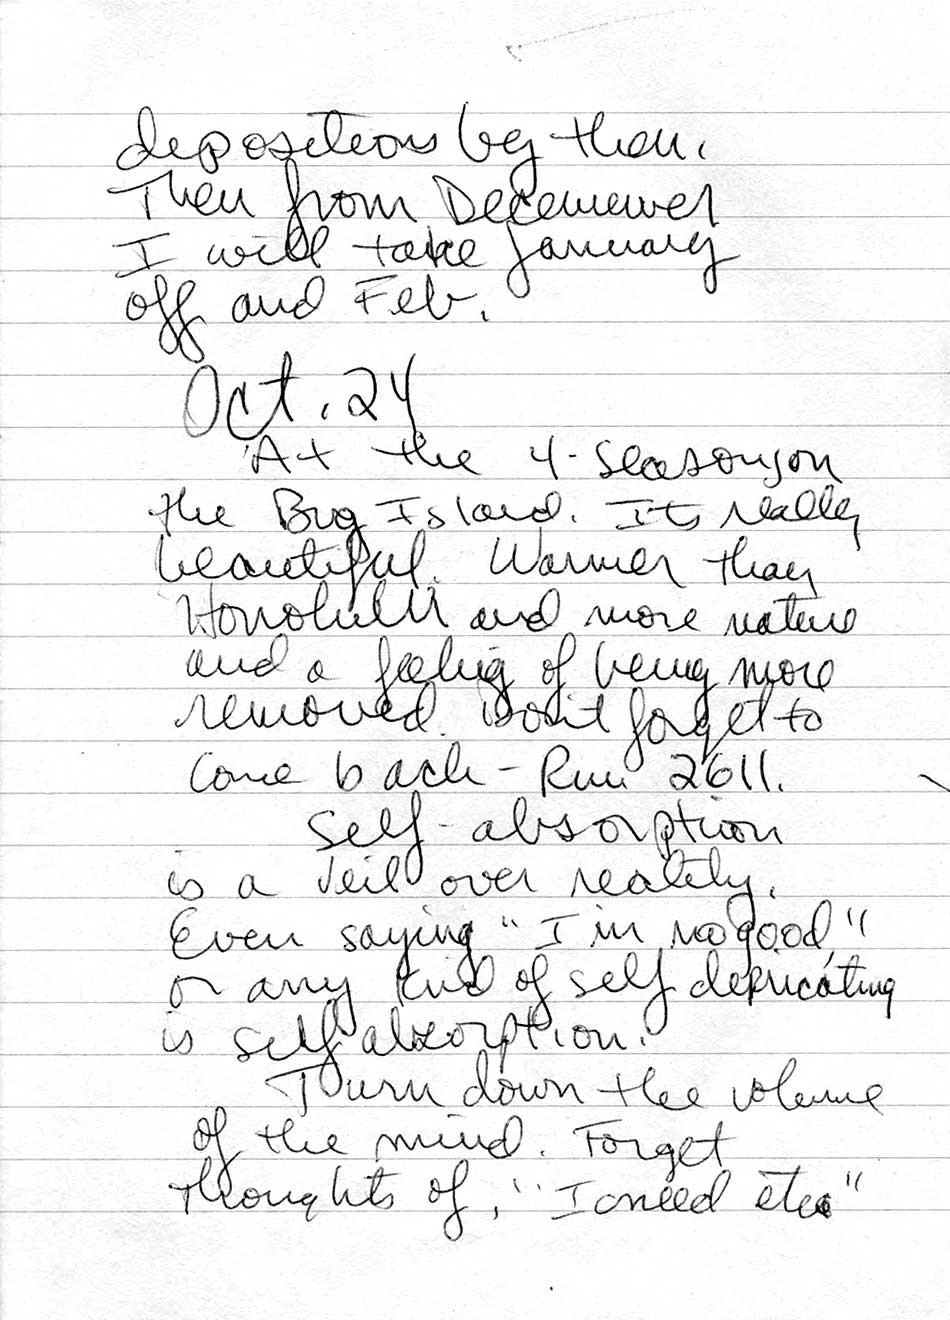 depositions by then.
Then from Decemember
I will take January
off and Feb.
Oct. 24
At the 4-Seasons on
the Big Island. Its really
beautiful. Warmer than
Honolulu and more nature
and a feeling of being more
removed. Don't forget to
come back - Rm 2611.
Self-absorption
is a veil over reality.
Even saying "I'm no good"
or any kind of self depricating
is self absorption.
Turn down the volume
of the mind. Forget
thoughts of, "I need etc"